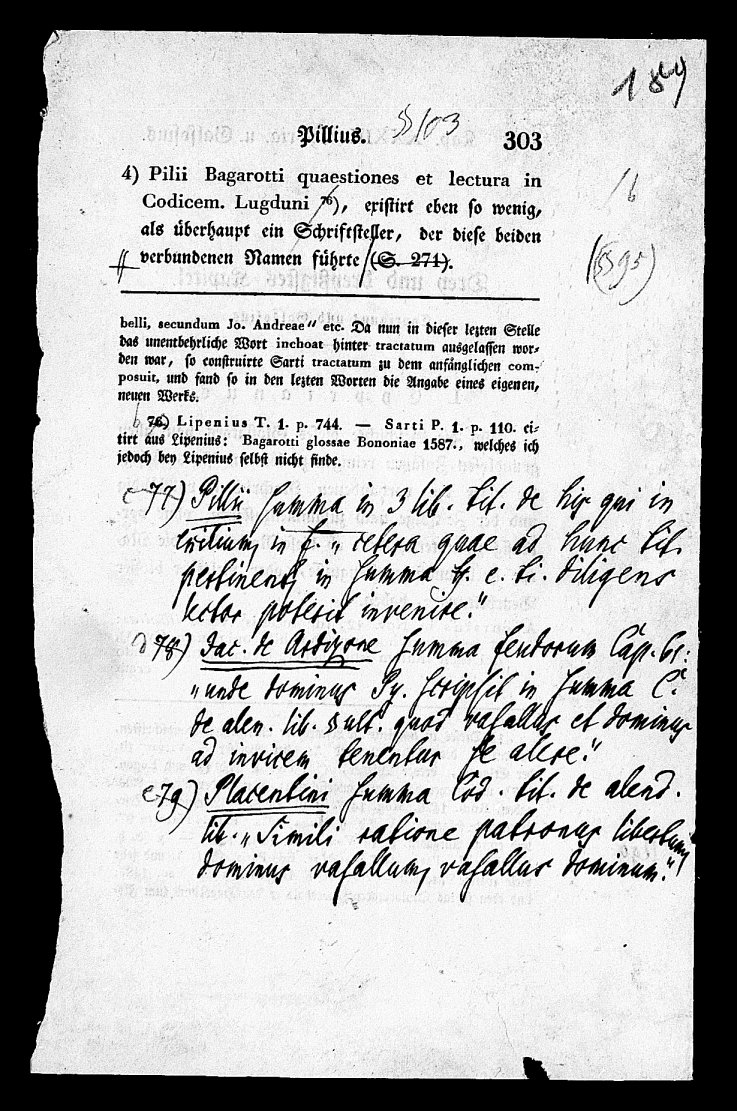 184
Pillius. § 103 303
4) Pilii Bagarotti quaestiones et lectura in
Codicem. Lugduni 76), existirt eben so wenig,
als überhaupt ein Schriftsteller, der diese beiden
verbundenen Namen führte (S. 271).
b
(§ 95)
belli, secundum Jo. Andreae“ etc. Da nun in dieser lezten Stelle
das unentbehrliche Wort inchoat hinter tractatum ausgelassen wor⸗
den war, so construirte Sarti tractatum zu dem anfänglichen com-
posuit, und fand so in den lezten Worten die Angabe eines eigenen,
neuen Werks.
b 76) Lipenius T. 1. p. 744. — Sarti P. 1. p. 110. ci⸗
tirt aus Lipenius: Bagarotti glossae Bononiae 1587., welches ich
jedoch bey Lipenius selbst nicht finde.
c 77) Pillii Summa in 3 lib. tit. de his qui in
exilium, in f. „cetera quae ad hunc tit.
pertinent, in Summa ff. e. ti. diligens
lector poterit invenire.“
d 78) Jac. de Ardizone Summa feudorum Cap. 61:
„unde dominus Py. scripsit in Summa C.
de alen. lib. §ult. quod vasallus et dominus
ad invicem tenentur se alere.“
e 79) Placentini Summa Cod. tit. de alend.
lib. „Simili ratione patronus libertum,
dominus vasallum, vasallus dominum.“